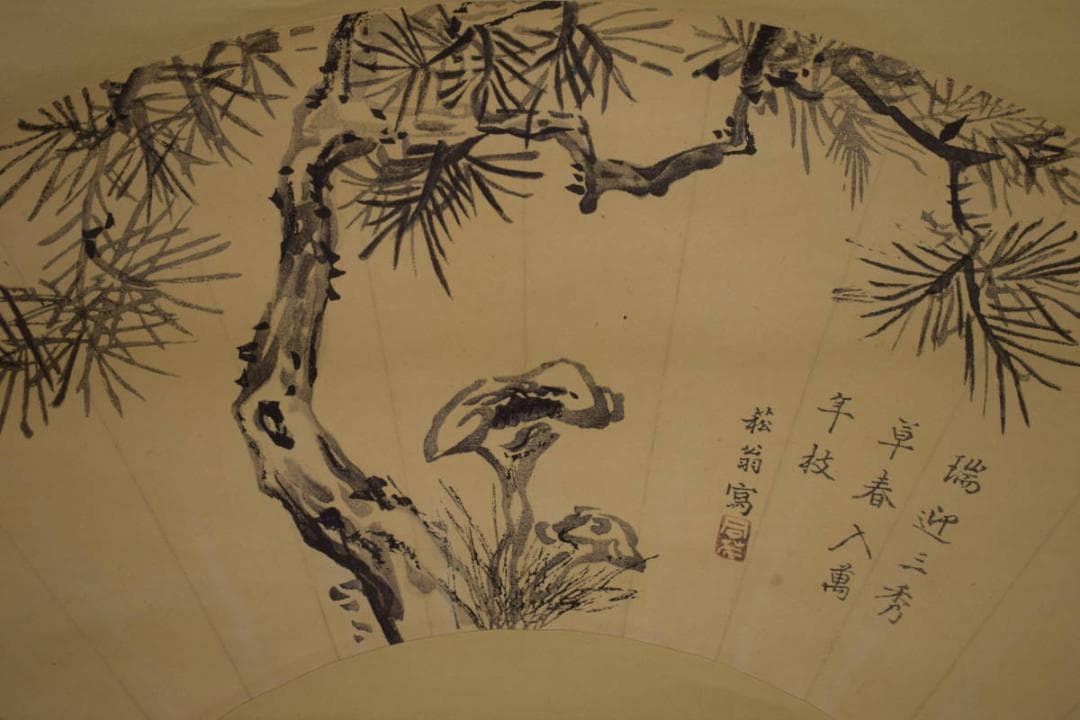 瑞迎三秀
草春入萬
年枝
菘翁寫